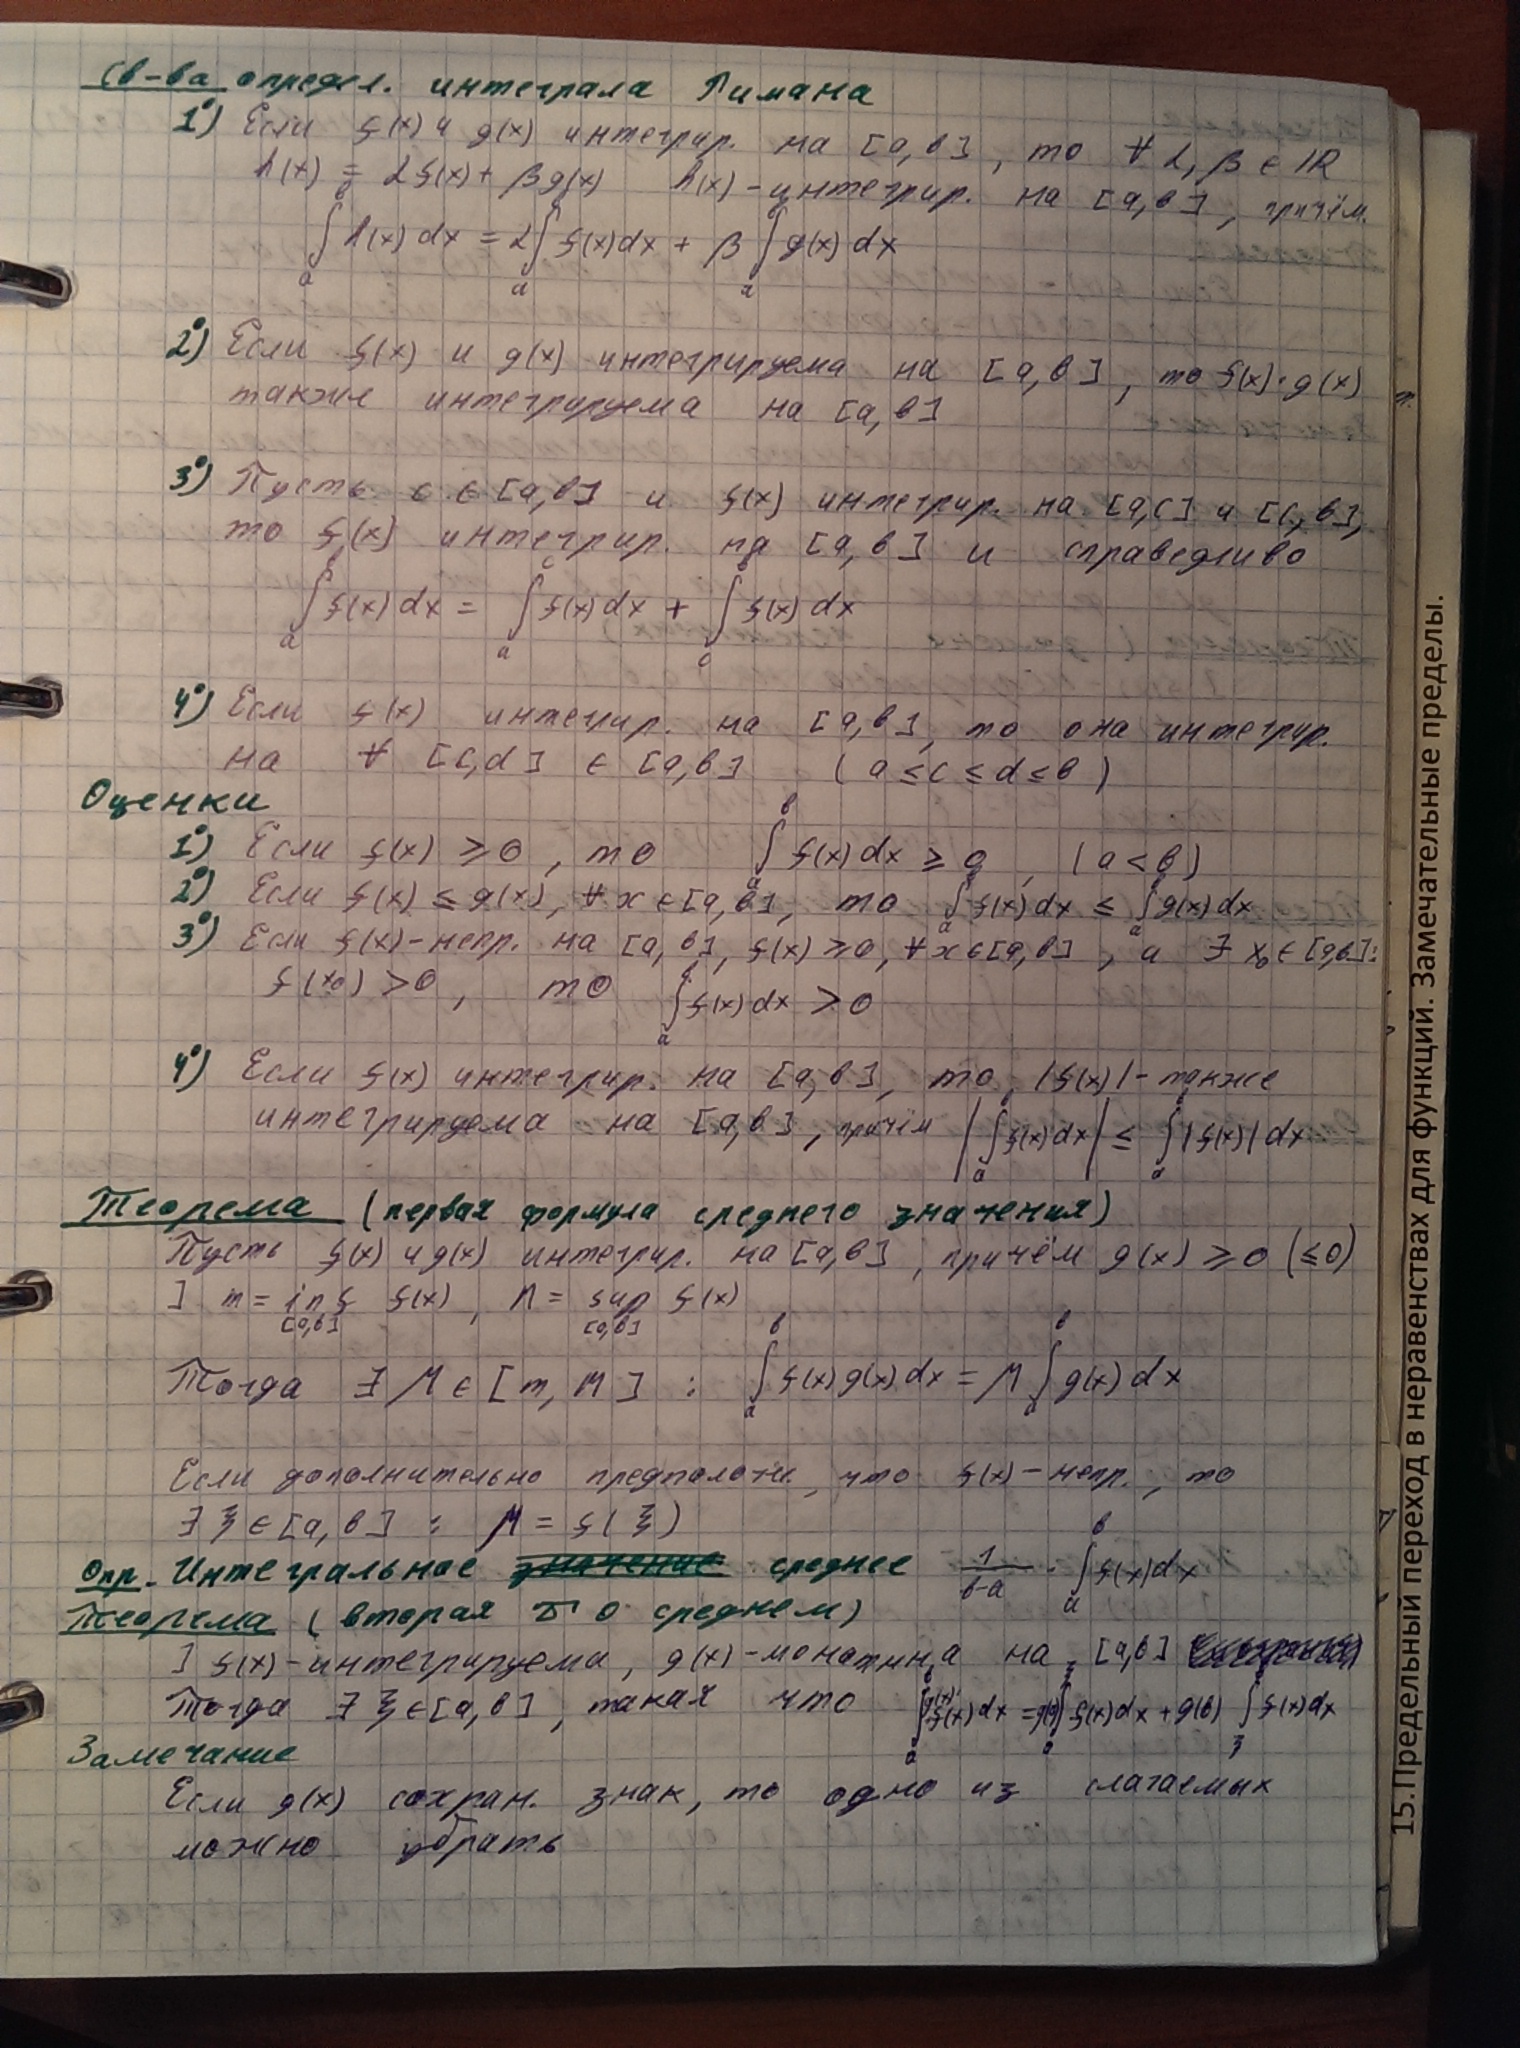 Св-ва определ. интеграла Римана
1°) Если f(x) и g(x) интегрир. на [a,b], то ∀ α, β ∈ ℝ
h(x) = αf(x) + βg(x) h(x) - интегрир. на [a,b], причём.
∫ₐᵇ h(x) dx = α∫ₐᵇ f(x) dx + β ∫ₐᵇ g(x) dx
2°) Если f(x) и g(x) интегрируема на [a,b], то f(x)·g(x)
также интегрируема на [a,b]
3°) Пусть c ∈ [a,b] и f(x) интегрир. на [a,c] и [c,b],
то f(x) интегрир. на [a,b] и справедливо
∫ₐᵇ f(x) dx = ∫ₐᶜ f(x) dx + ∫_c^b f(x) dx
4°) Если f(x) интегрир. на [a,b], то она интегрир.
на ∀ [c,d] ∈ [a,b] (a ≤ c ≤ d ≤ b)
Оценки
1°) Если f(x) ≥ 0, то ∫ₐᵇ f(x) dx ≥ 0, (a < b)
2°) Если f(x) ≤ g(x), ∀ x ∈ [a,b], то ∫ₐᵇ f(x) dx ≤ ∫ₐᵇ g(x) dx
3°) Если f(x) - непр. на [a,b], f(x) ≥ 0, ∀ x ∈ [a,b], а ∃ x₀ ∈ [a,b]:
f(x₀) > 0, то ∫ₐᵇ f(x) dx > 0
4°) Если f(x) интегрир. на [a,b], то |f(x)| - также
интегрируема на [a,b], причём |∫ₐᵇ f(x) dx| ≤ ∫ₐᵇ |f(x)| dx
Теорема (первая формула среднего значения)
Пусть f(x) и g(x) интегрир. на [a,b], причём g(x) ≥ 0 (≤ 0)
] m = inf f(x), M = sup f(x)
[a,b] [a,b]
Тогда ∃ μ ∈ [m, M] : ∫ₐᵇ f(x) g(x) dx = μ ∫ₐᵇ g(x) dx
Если дополнительно предполож., что f(x) - непр., то
∃ ξ ∈ [a,b] : μ = f(ξ)
Опр. Интегральное среднее 1/(b-a) · ∫ₐᵇ f(x) dx
Теорема (вторая T о среднем)
] f(x) - интегрируема, g(x) - монотонна на [a,b]
Тогда ∃ ξ ∈ [a,b], такая что ∫ₐᵇ f(x) g(x) dx = g(a) ∫_a^ξ f(x) dx + g(b) ∫_ξ^b f(x) dx
Замечание
Если g(x) сохран. знак, то одно из слагаемых
можно убрать
15.Предельный переход в неравенствах для функций. Замечательные пределы.